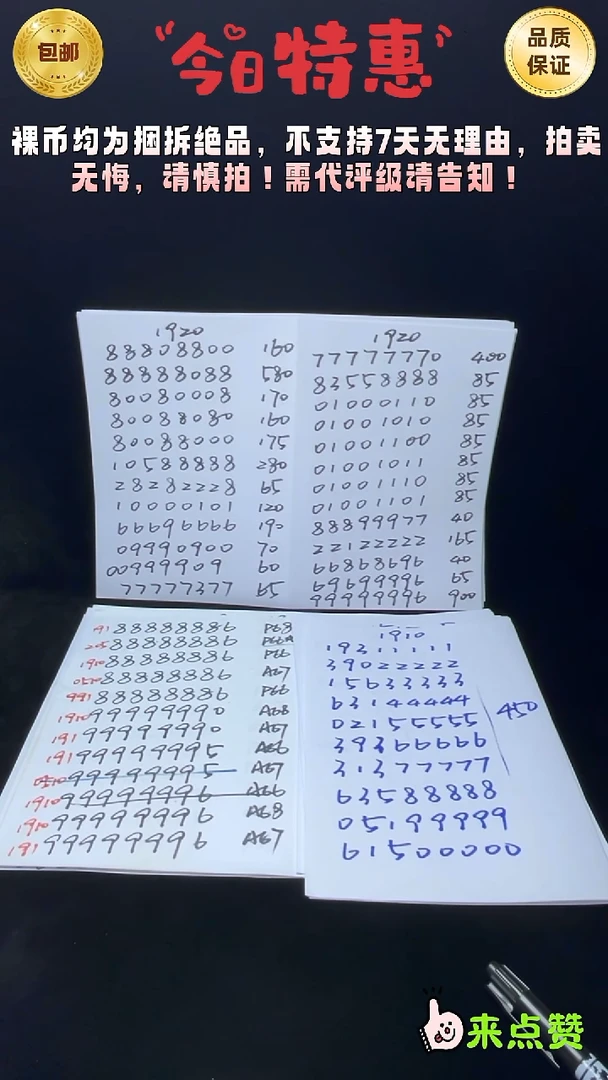 包邮
今日特惠
品质
保证
裸币均为捆拆绝品，不支持7天无理由，拍卖
无悔，请慎拍！需代评级请告知！
1920
88808800 160
88888088 580
80080008 170
80088080 160
80088000 175
10588888 280
28282228 65
10000101 120
66696666 190
09990900 70
00999909 60
77777377 65
1920
77777770 400
83558888 85
01000110 85
01001010 85
01001100 85
01001011 85
01001110 85
01001101 85
88899977 40
22122222 165
66868696 40
69699996 65
99999996 900
91 88888886 P68
88888886
1910 88888886 P66
0510 88888886 A67
991 88888886 P66
1910 99999990 A68
191 99999990 A67
191 99999995 A66
0510 99999995 A67
1910 99999996 A66
1910 99999996 A68
191 99999996 A67
1910
19311111
39022222
15633333
63144444
02155555
39366666
31377777
450
63588888
05199999
61500000
来点赞